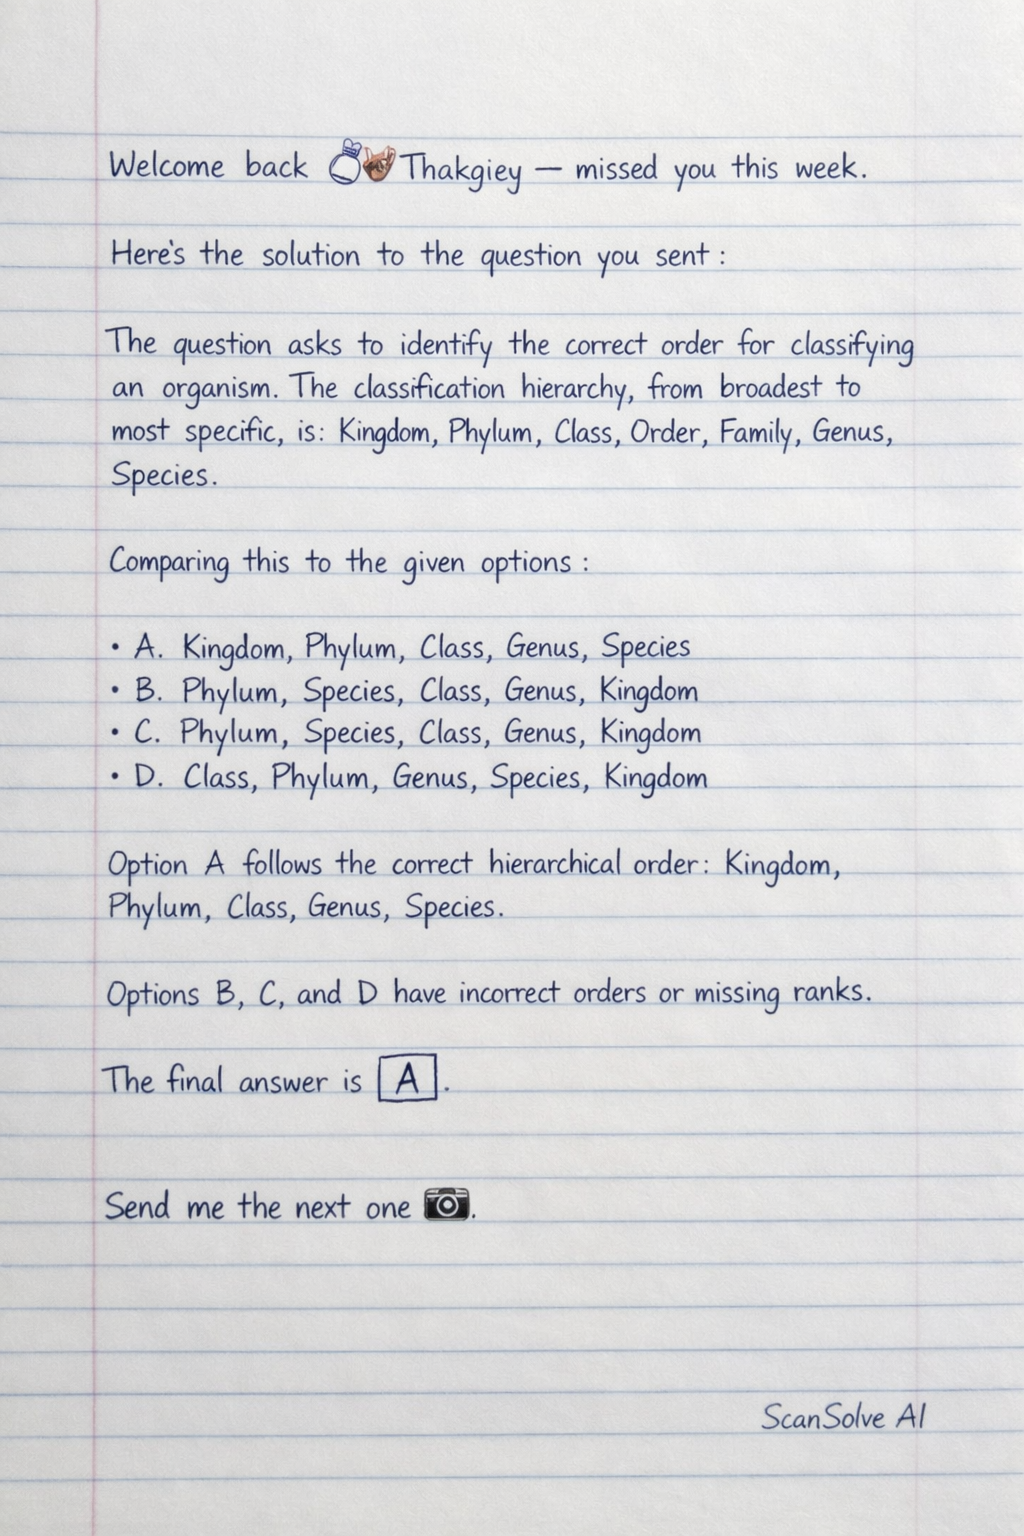 Welcome back Thakgiey — missed you this week.
Here's the solution to the question you sent :
The question asks to identify the correct order for classifying
an organism. The classification hierarchy, from broadest to
most specific, is: Kingdom, Phylum, Class, Order, Family, Genus,
Species.
Comparing this to the given options :
• A. Kingdom, Phylum, Class, Genus, Species
• B. Phylum, Species, Class, Genus, Kingdom
• C. Phylum, Species, Class, Genus, Kingdom
• D. Class, Phylum, Genus, Species, Kingdom
Option A follows the correct hierarchical order: Kingdom,
Phylum, Class, Genus, Species.
Options B, C, and D have incorrect orders or missing ranks.
The final answer is A.
Send me the next one 📷.
ScanSolve AI